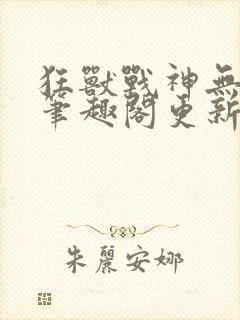 狂獸戰神無
筆趣閣更新
朱麗安娜